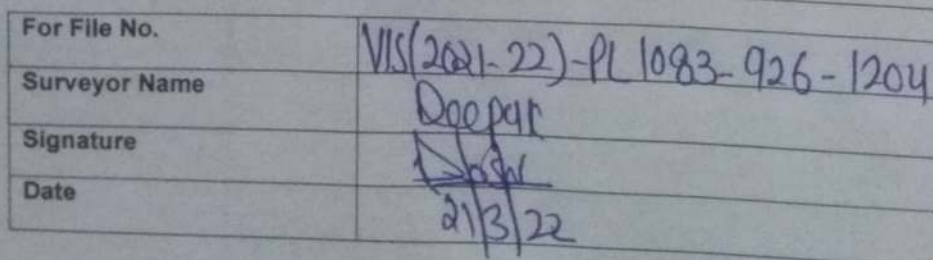 For File No. VIS(2021-22)-PL 1083-926-1204
Surveyor Name Deepak
Signature
Date 21/3/22